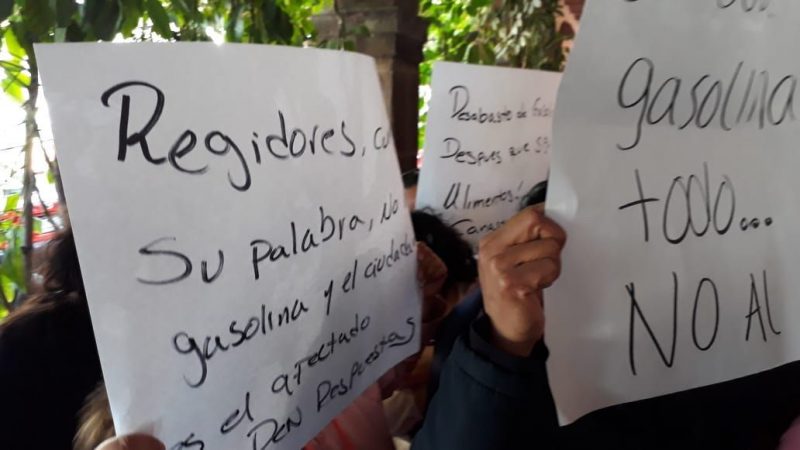 Regidores,
Su palabra, No
gasolina y el
es el afectado
Den Respuestas
Desabasto de
Despues que
Alimentos!
gasolina
todo...
NO Al